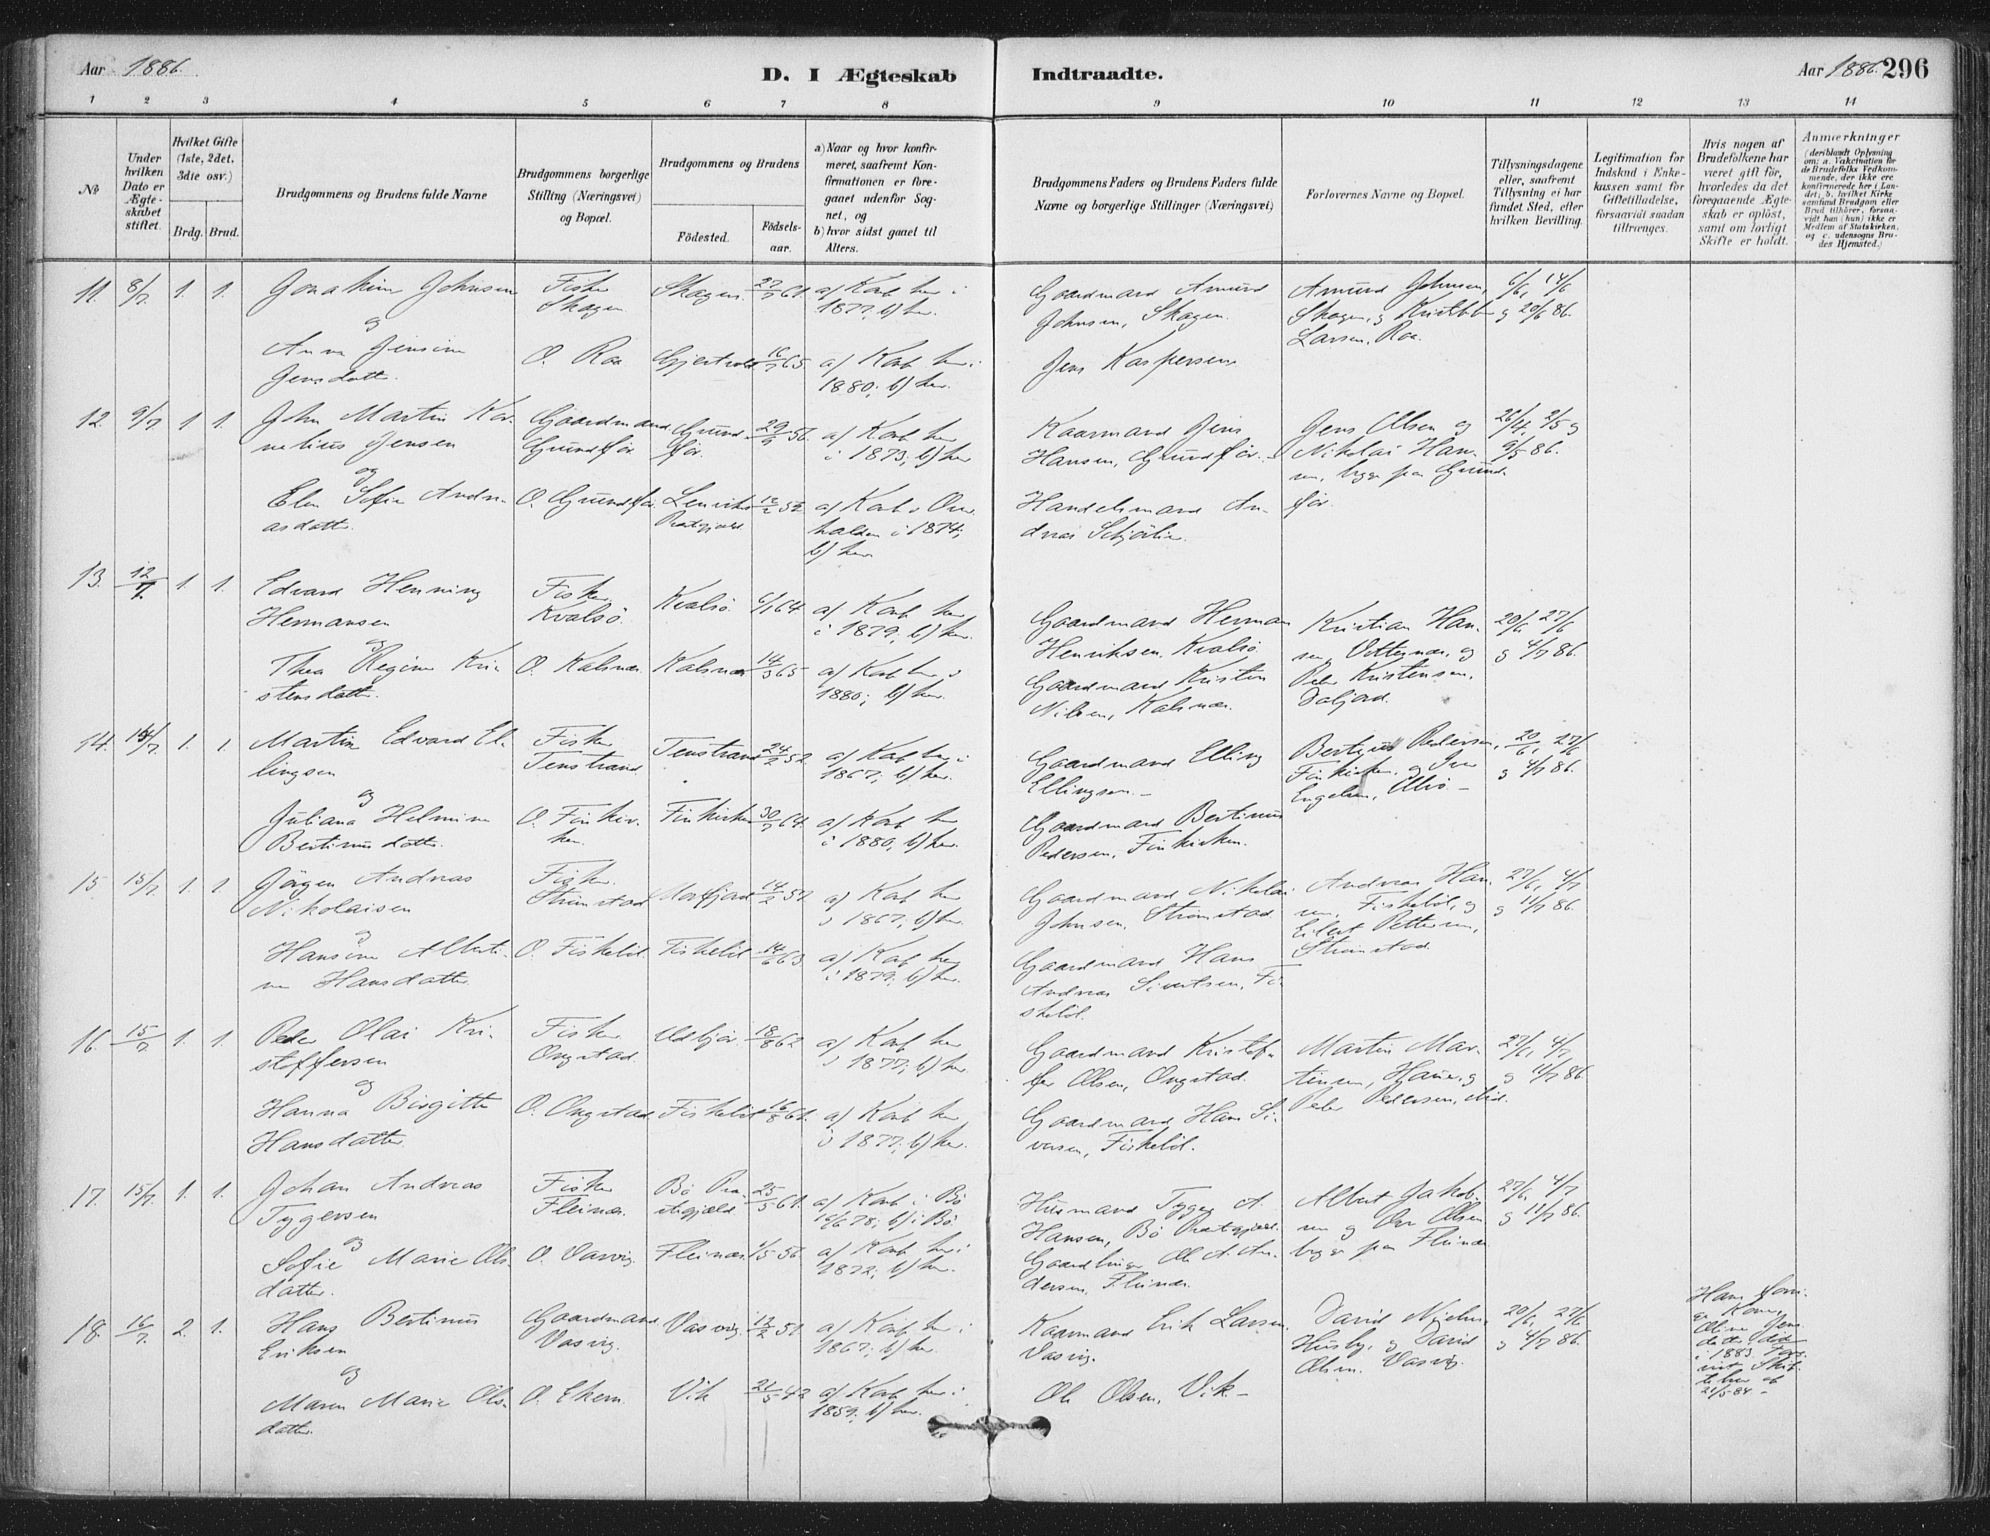 Aar 1886.
D. I Ægteskab Indtraadte.
Aar 1886. 296
1 2 3 4 5 6 7 8 9 10 11 12 13 14
No
Under hvilken Dato er Ægteskabet stiftet.
Hvilket Gifte (1ste, 2det, 3die osv.)
Brdg. Brud.
Brudgommens og Brudens fulde Navne
Brudgommens borgerlige Stilling (Næringsvei) og Bopæl.
Brudgommens og Brudens
Födested. Födselsaar.
a) Naar og hvor konfirmeret, saafremt Konfirmationen er foregaaet udenfor Sognet, og
b) hvor sidst gaaet til Alters.
Brudgommens Faders og Brudens Faders fulde Navne og borgerlige Stillinger (Næringsvei)
Forlovernes Navne og Bopæl.
Tillysningsdagene eller, saafremt Tillysning ei har fundet Sted, efter hvilken Bevilling.
Legitimation for Indskud i Enkekassen samt for Giftetilladelse, forsaavidt saadan tiltrænges.
Hvis nogen af Brudefolkene har været gift før, hvorledes da det foregaaende Ægteskab er oplöst, samt om lovligt Skifte er holdt.
Anmærkninger
(deriblandt Oplysning om: a. Vakcination for de Brudefolks Vedkommende, der ikke ere konfirmerede her i Landet; b. hvilket Kirkesamfund Brudgom eller Brud tilhörer, forsaavidt han (hun) ikke er Medlem af Statskirken, og c. udensogns Brudes Hjemsted.)
11. 8/7 1. 1. Joakim Johnsen Fisker Skagen Skagen 27/7 61. a) Konf. her i 1877; b) her.
Gaardmand Amund Johnsen, Skagen.
Amund Johnsen, Skagen, og Larsen, Roa. 6/6, 14/6 og 20/6 86.
og
Anna Jensine Jensdatter. O. Roa 16/7 65. a) Konf. her i 1880; b) her.
Jens Kaspersen
12. 9/7 1 1. John Martin Kornelius Jensen Gaardmand Grundfør Grundfør. 29/9 56. a) Konf. her i 1873; b) her
Kaarmand Jens Hansen, Grundfør.
Jens Olsen og Nikolai Hansen, begge paa Grundfør. 26/4, 2/5 og 9/5 86.
og
Elen Sofie Andreasdatter. O. Grundfør. 12/2 52 a) Konf. i Overhalden i 1874; b) her
Handelsmand Andreas
13. 12/7. 1. 1. Edvard Henning Hermansen Fisker Kvalsø Kvalsø. 6/1 64. a) Konf. her i 1879; b) her.
Gaardmand Herman Henriksen. Kvalsø.
Kristian Hansen, og Peder Kristensen, 20/6, 27/6 og 4/7 86.
og
Thea Regine Kristensdatter. O. Kalsnæs. Kalsnæs 14/3 65 a) Konf. her i 1880; b) her.
Gaardmand Kristen Nilsen, Kalsnæs.
14. 14/7. 1. 1. Martin Edvard Elingsen Fisker Tenstrand Tenstrand 24/2 52 a) Konf. her i 1867; b) her.
Gaardmand Elling Ellingsen. –
Bertinus Pedersen, Finkirken, og Engelsen, 20/6, 27/6 og 4/7 86.
og
Juliana Helmine Bertinusdatter. O. Finkirken. Finkirken 30/7 64. a) Konf. her i 1880; b) her.
Gaardmand Bertinus Pedersen, Finkirken.
15 15/7 1. 1. Jörgen Andreas Nikolaisen Fisker. Strømstad 14/2 52. a) Konf. her i 1867; b) her
Gaardmand Nikolai Johnsen, Strømstad
Andreas Hansen, Fiskebøl, og Eilert Pettersen, Strømstad 27/6, 4/7 og 11/7 86.
og
Hansine Albertine Hansdatter. O. Fiskebøl. Fiskebøl 14/6 63 a) Konf. her i 1879; b) her.
Gaardmand Hans Andreas Sivertsen, Fiskebøl.
16. 15/7. 1. 1. Peder Olai Kristoffersen Fisker Ongstad. 18/8 62 a) Konf. her i 1877; b) her
Gaardmand Kristoffer Olsen, Ongstad.
Martin Martinsen, og Peder Pedersen, 27/6, 4/7 og 11/7 86.
og
Hanna Birgitte Hansdatter. O. Ongstad Fiskebøl 16/8 61. a) Konf. her i 1877; b) her.
Gaardmand Hans Siversen, Fiskebøl.
17. 15/7. 1. 1. Johan Andreas Tygersen Fisker Fleinæs. Bø Præstegjæld 25/5 61. a) Konf. i Bø 16/6 78; b) i Bø.
Husmand Tyger A. Hansen, Bø Præstegjæld.
Albert Jakobsen og Olsen begge paa Fleinæs 27/6, 4/7 og 11/7 86.
og
Sofie Marie Olsdatter. O. Fleinæs. 1/5 56. a) Konf. her i 1872; b) her.
Ole A. Andersen, Fleinæs.
18. 16/7. 2. 1. Hans Bertinus Eriksen Gaardmand Vasvig. Vasvig. 12/2 51 a) Konf. her i 1867; b) her.
Kaarmand Erik Larsen, Vasvig.
David Husby, og David Olsen, Vasvig. 20/6, 27/6 og 4/7 86.
Hans Kone, Oline Jensdatter, døde i 1883.
21/5 84 –
og
Maren Marie Olsdatter. O. Ekern. Vik 21/5 42 a) Konf. her i 1859; b) her.
Ole Olsen, Vik. –